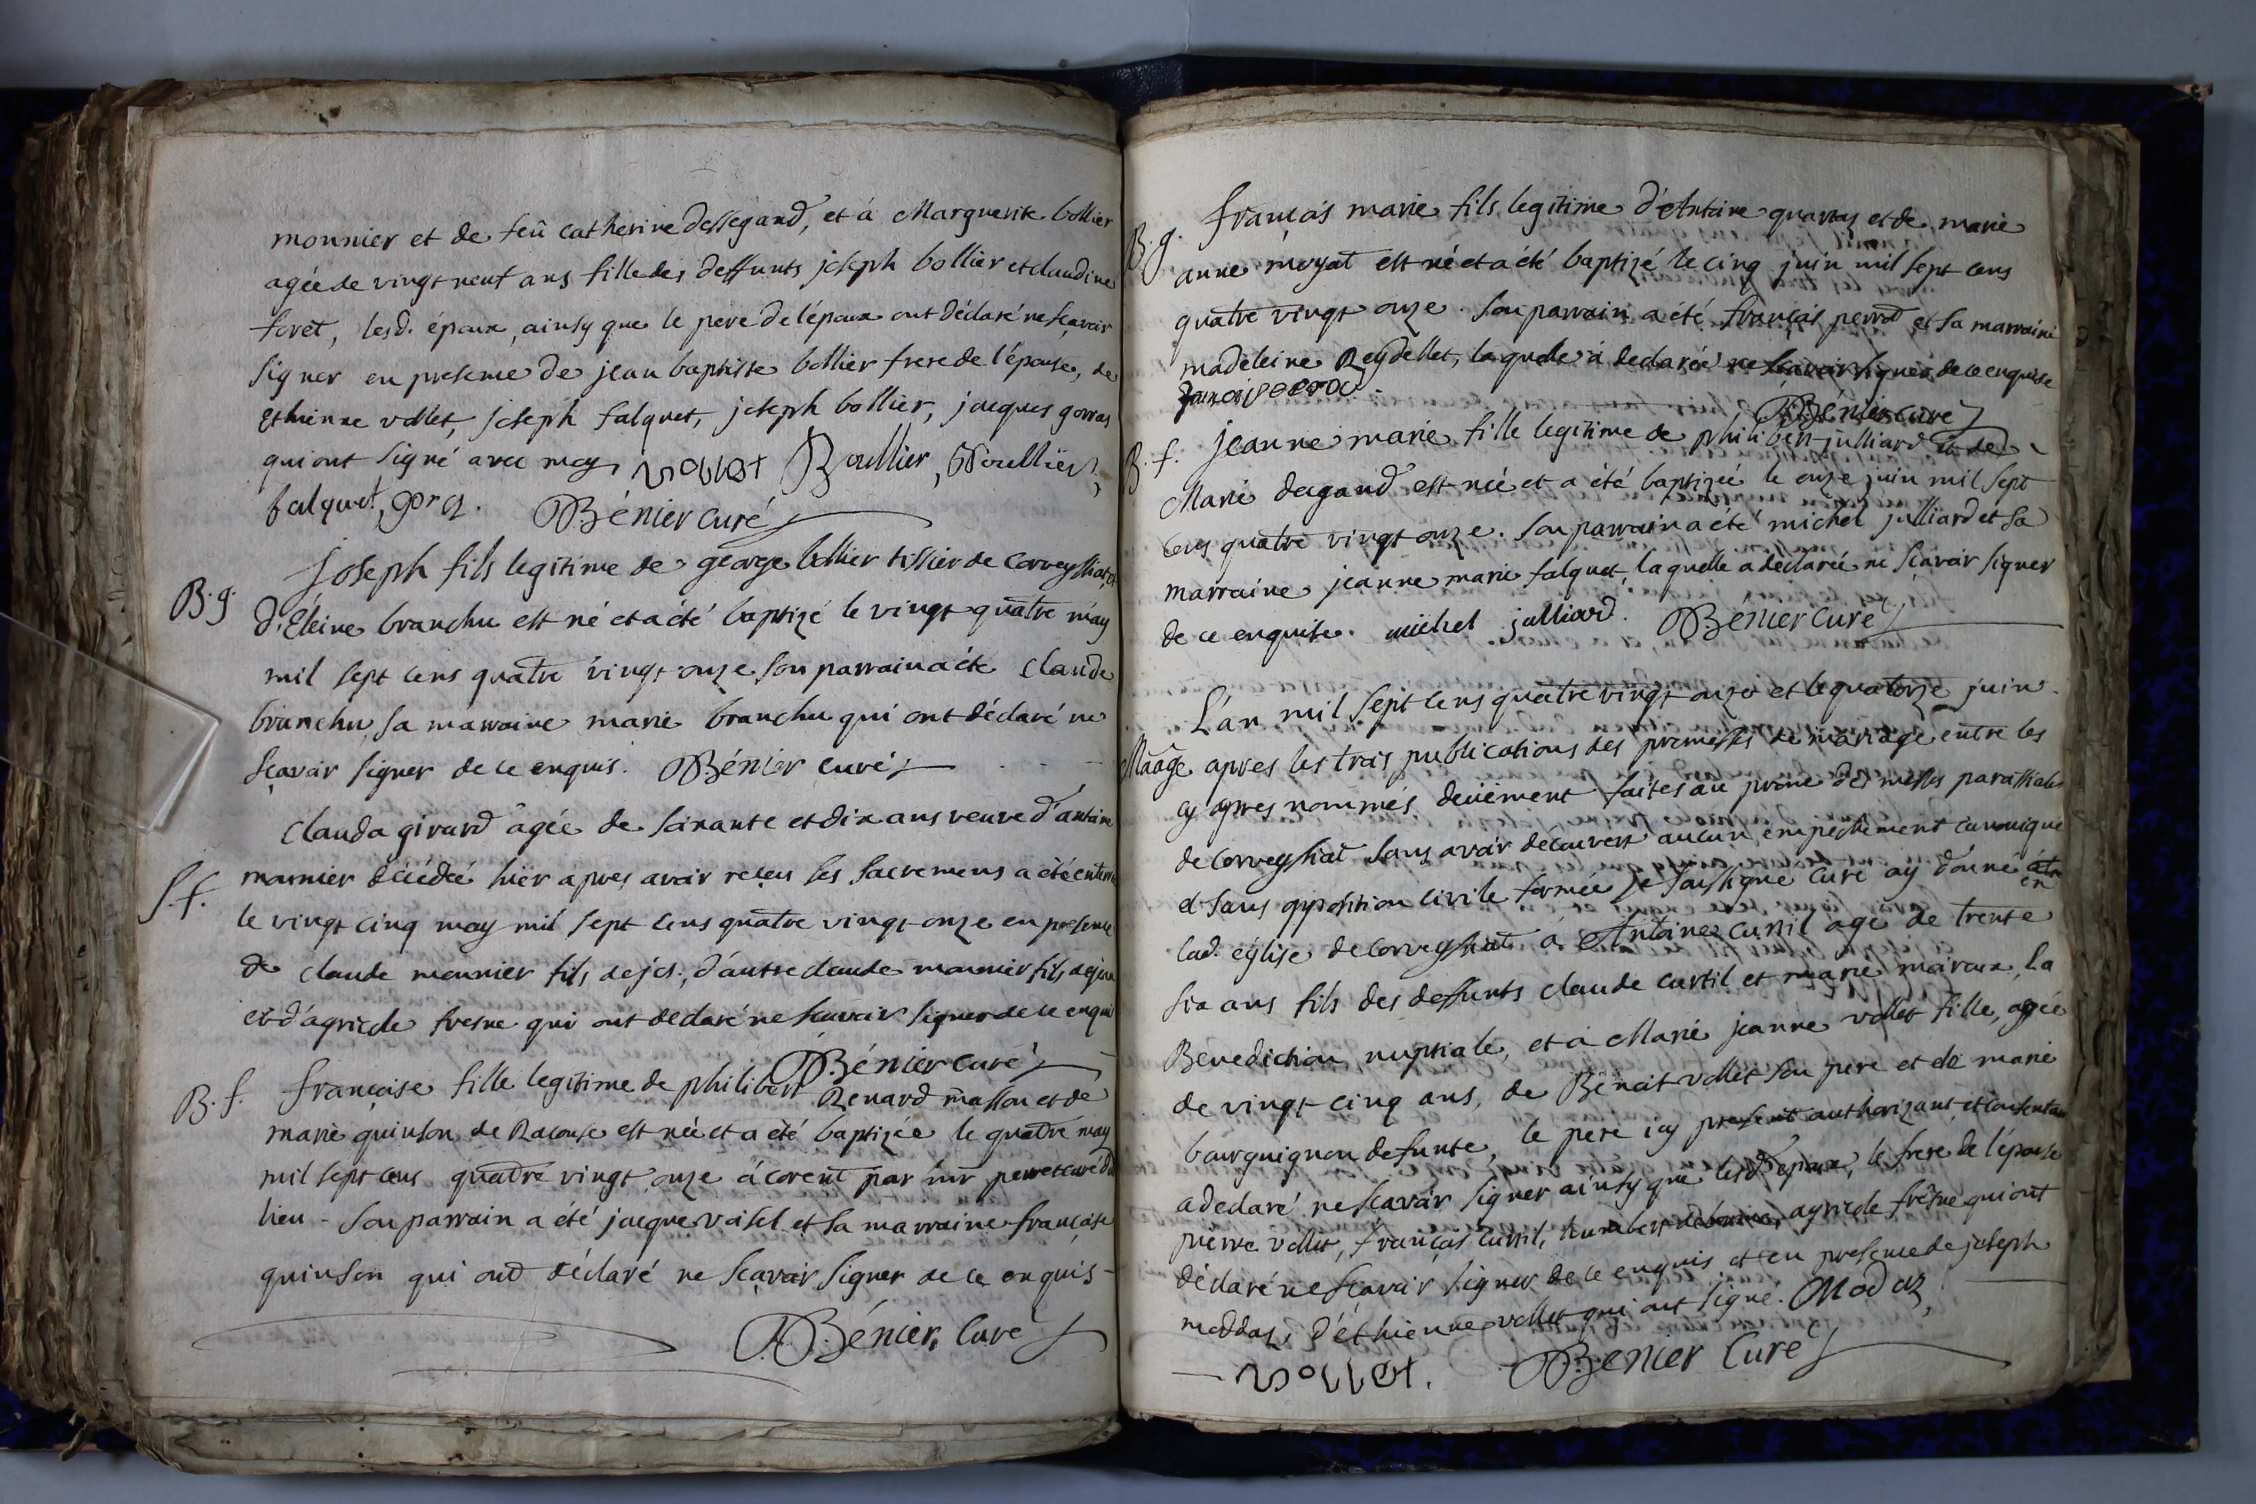 monnier et de feû catherine dessegand, et à Marguerite bollier
agée de vingt neuf ans fille des deffunts joseph bollier et claudine
foret, lesd. époux, ainsy que le pere de l'époux ont déclaré ne sçavoir
signer en presence de jean baptiste bollier frere de l'épouse, de
Ethienne vollet, joseph falquet, joseph bollier, jacques gorras
qui ont signé avec moy vollet Boullier, Boullier,
falquet, gorra. Bénier curé
B. g. Joseph fils legitime de george bollier tissier de Corveyssiat et
d'Eleine branchu est né et a été baptizé le vingt quatre may
mil sept cens quatre vingt onze son parrain a été claude
branchu, sa marraine marie branchu qui ont déclaré ne
sçavoir signer de ce enquis. Bénier curé
Clauda girard agée de soixante et dix ans veuve d'antoine
S. f. monnier décédée hier apres avoir reçeu les sacremens a été enterré
le vingt cinq may mil sept cens quatre vingt onze en presence
de claude monnier fils de jos. d'autre claude monnier fils de jean
et d'agricole fresne qui ont declaré ne scavoir signer de ce enquis
Bénier curé
B. f. françoise fille legitime de philibert Renard masson et de
marie quinson de Racouse est née et a été baptizée le quatre may
mil sept cens quatre vingt onze à corent par mr perret curé du
lieu - son parrain a été jacque voisel et sa marraine françoise
quinson qui ond déclaré ne sçavoir signer de ce enquis -
Bénier, Curé
B. g. françois marie fils legitime d'Antoine quarras et de marie
anne moyat est né et a été baptizé le cinq juin mil sept cens
quatre vingt onze. son parrain a été françois perrod et sa marraine
madeleine Reydellet, laquelle à declarée ne scavoir signer de ce enquise
Bénier curé
B. f. jeanne marie fille legitime de philibert julliard et de
Marie dagand est née et a été baptizée le onze juin mil sept
cens quatre vingt onze. son parrain a été michel julliard et sa
marraine jeanne marie falquet, laquelle a déclarée ne scavoir signer
de ce enquise. michel julliard. Bénier curé
L'an mil sept cens quatre vingt onze et le quatorze juin
Maâge apres les trois publications des promesses de mariage entre les
cy apres nommés, deüement faites au prone des messes paroissiales
de corveyssiat sans avoir decouvert aucun empechement canonique
et sans opposition civile formée je soussigné curé ay donné
en
lad. église de corveyssiat à Antoine curtil agé de trente
six ans fils des deffunts claude curtil et marie moiroux, la
Benediction nuptiale, et à Marie jeanne vollet fille, agée
de vingt cinq ans, de Benoit vollet son pere et de marie
bourguignon defunte, le pere icy present authorizant et consentant
a declaré ne scavoir signer ainsy que lesd. époux, le frere de l'épouse
pierre vollet, françois curtil, agricole frêsne qui ont
déclaré ne scavoir signer de ce enquis et en presence de joseph
moddas, d'éthienne vollet qui ont signé. Modaz
vollet. Benier Curé